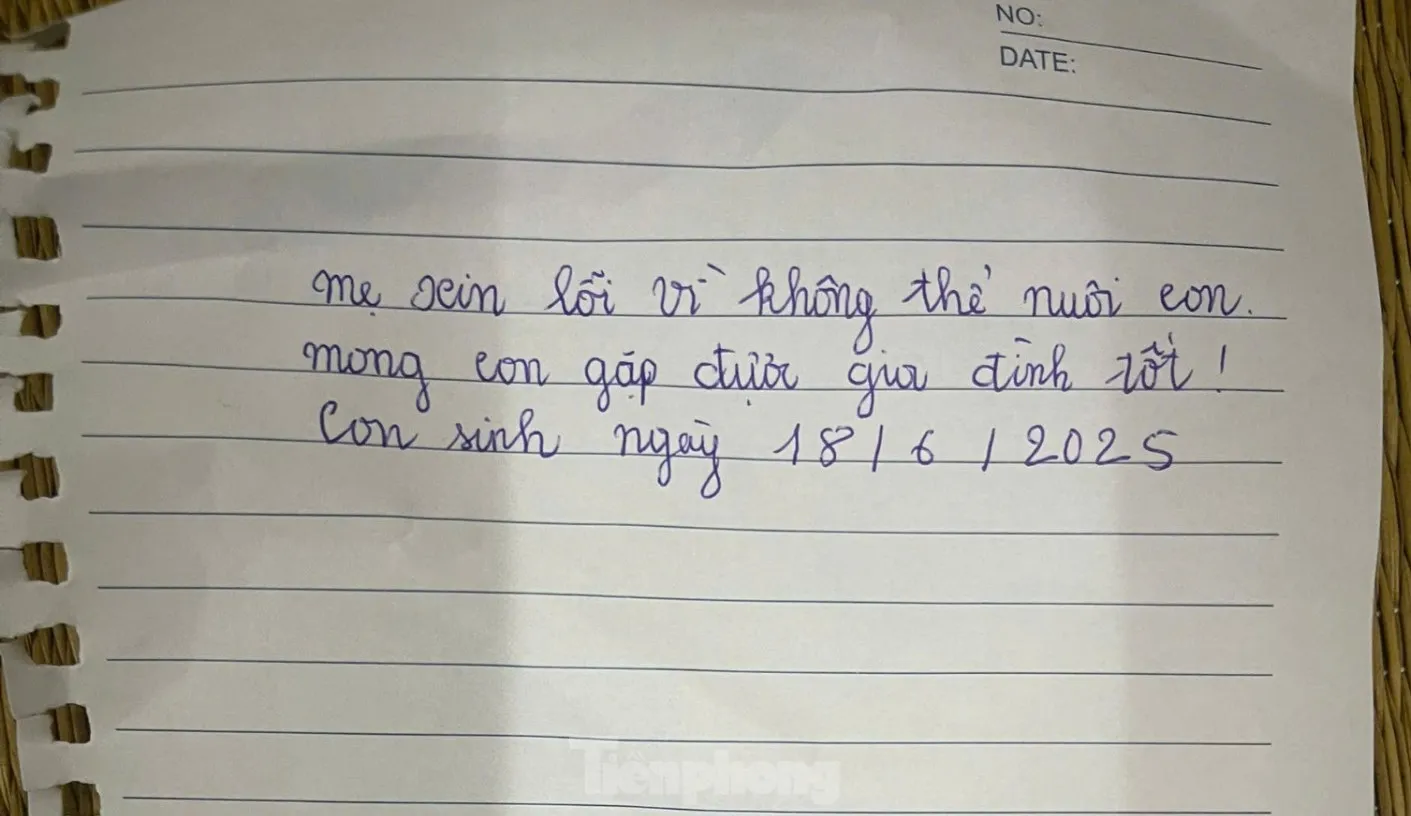 NO:
DATE:
mẹ xin lỗi vì không thể nuôi con.
mong con gặp được gia đình tốt!
Con sinh ngày 18/6/2025
Tiênphong